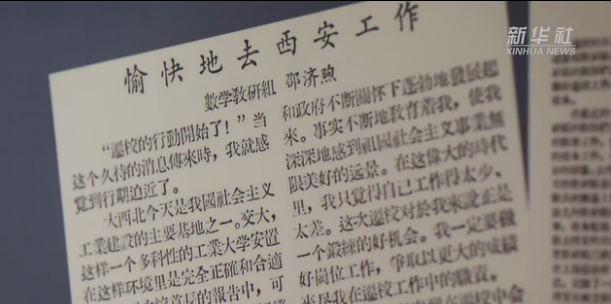 新华社
XINHUA NEWS
愉快地去西安工作
數学教研組 邵济煦
“遷校的行動開始了！”当
这个久待的消息傳來時，我就感
覚到行期迫近了。
大西北今天是我國社会主义
工業建設的主要基地之一。交大，
这样一个多科性的工業大学安置
在这样环境里是完全正確和合適
和政府不断關怀下蓬勃地發展起
來。事实不断地教育着我，使我
深深地感到祖國社会主义事業無
限美好的远景。在这偉大的時代
里，我只覚得自己工作得太少、
太差。这次遷校对於我來說正是
一个鍛鍊的好机会。我一定要做
好崗位工作，爭取以更大的成績
來尽我在遷校工作中的職責。